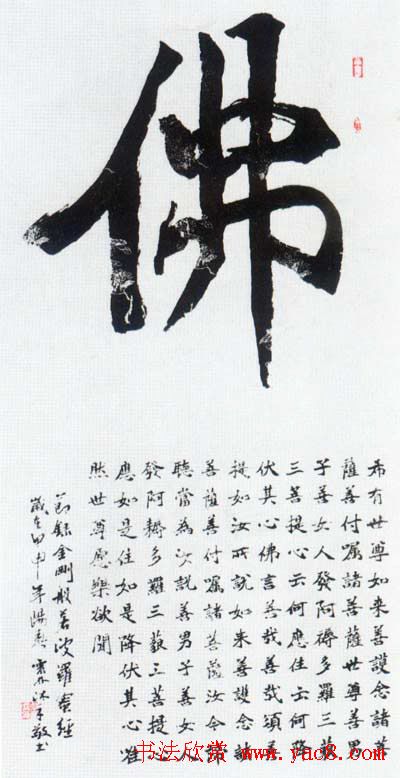 佛
希有世尊如来善護念諸菩
薩善付嘱諸菩薩世尊善男
子善女人發阿耨多羅三藐
三菩提心云何應住云何降
伏其心佛言善哉善哉須菩
提如汝所說如来善護念諸
菩薩善付嘱諸菩薩汝今諦
聽當為汝說善男子善女人
發阿耨多羅三藐三菩提心
應如是住如是降伏其心唯
然世尊願樂欲聞
節錄金剛般若波羅蜜經
歲在甲申年沐手敬书
书法欣赏
www.yac8.com